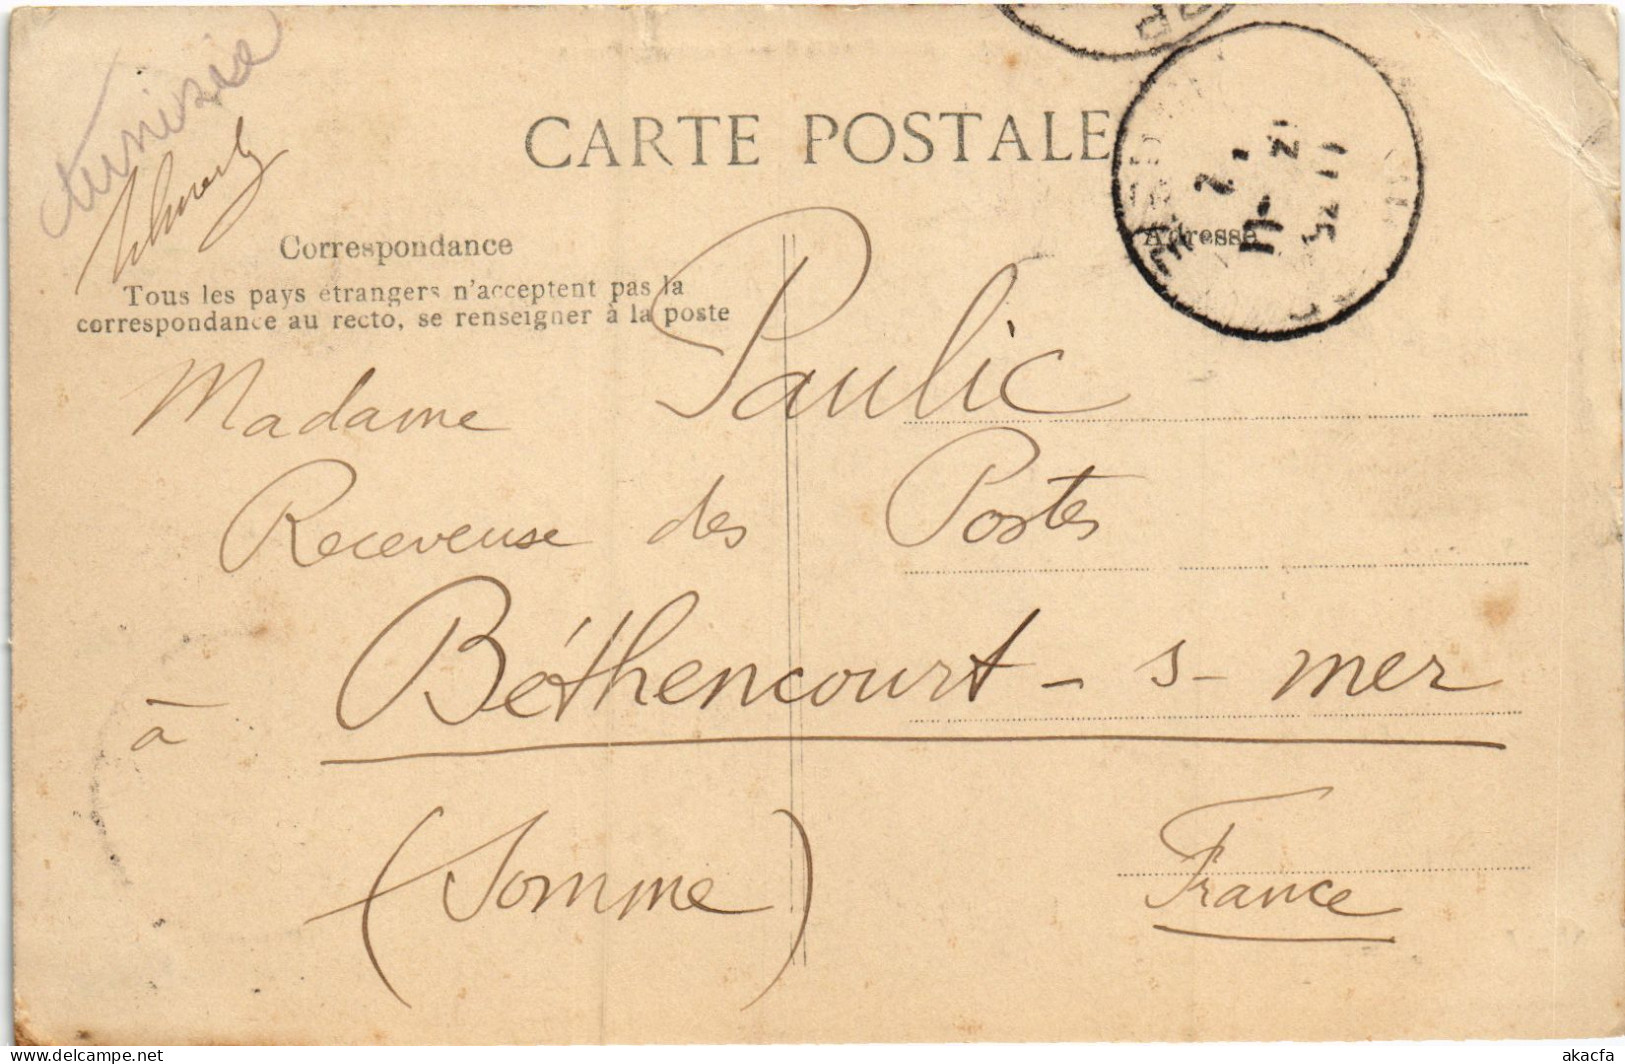 Tunisie
CARTE POSTALE
Correspondance
Adresse
Tous les pays étrangers n'acceptent pas la
correspondance au recto, se renseigner à la poste
Madame Paulic
Receveuse des Postes
à Béthencourt - s - mer
(Somme) France
akacfa